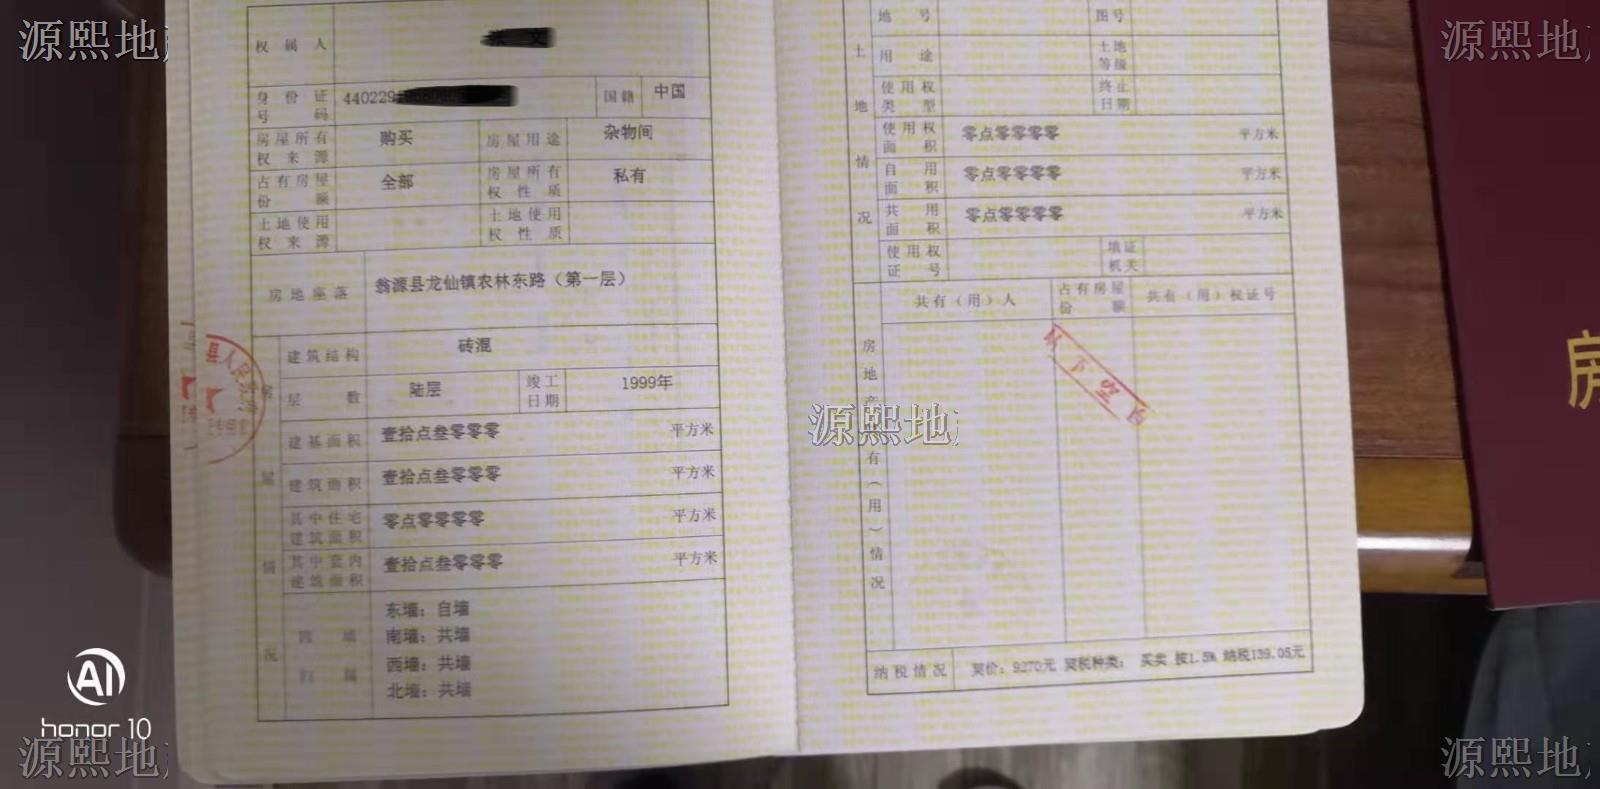 源熙地
源熙地
权属人
文
身份证
号码
440229
国籍
中国
房屋所有
权来源
购买
房屋用途
杂物间
占有房屋
份额
全部
房屋所有
权性质
私有
土地使用
权来源
土地使用
权性质
房地座落
翁源县龙仙镇农林东路（第一层）
房屋情况
建筑结构
砖混
层数
陆层
竣工
日期
1999年
建基面积
壹拾点叁零零零
平方米
建筑面积
壹拾点叁零零零
平方米
其中住宅
建筑面积
零点零零零零
平方米
其中套内
建筑面积
壹拾点叁零零零
平方米
四墙
归属
东墙：自墙
南墙：共墙
西墙：共墙
北墙：共墙
县人民政府
土地情况
地号
图号
用途
土地
等级
使用权
类型
终止
日期
使用权
面积
零点零零零零
平方米
自用
面积
零点零零零零
平方米
共用
面积
零点零零零零
平方米
使用权
证号
地证
机关
房地产共有（用）情况
共有（用）人
占有房屋
份额
共有（用）权证号
以下空白
源熙地
纳税情况
契价：9270元 契税种类： 买卖 按1.5% 纳税139.05元
房
AI
honor 10
源熙地
源熙地